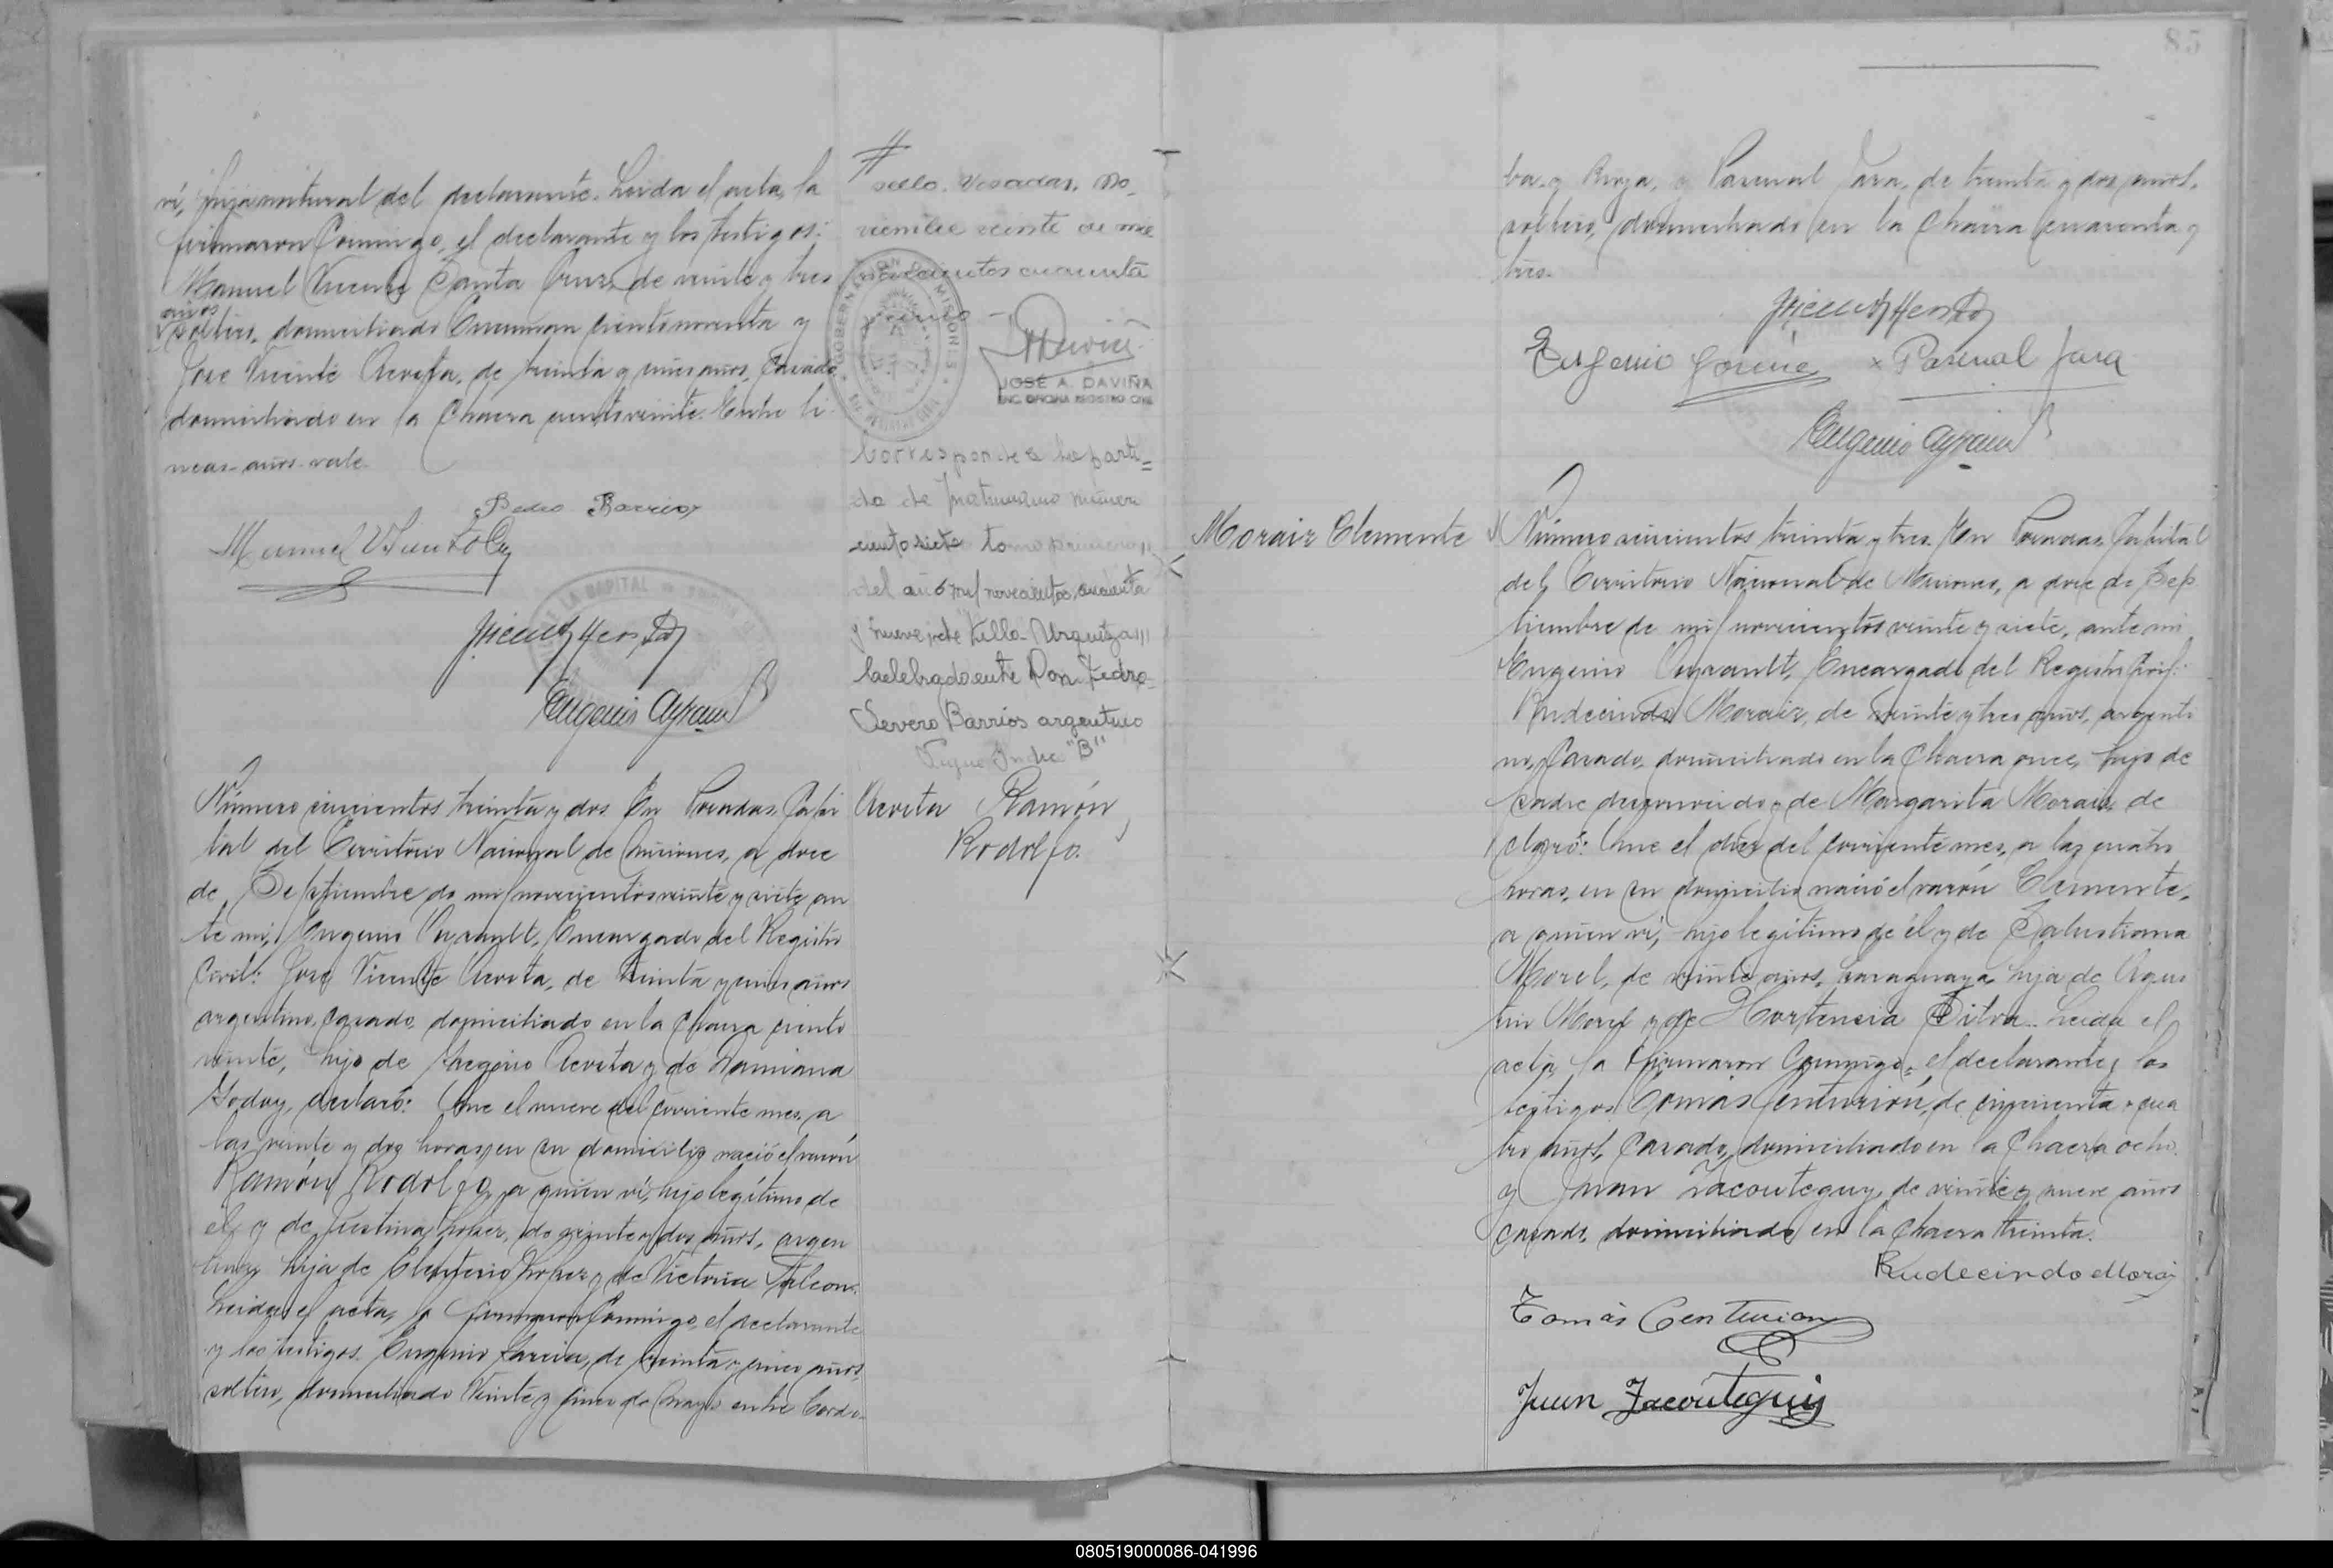 vi, hija natural del declarante. Leida el acta, la
firmaron Conmigo, el declarante y los testigos:
Manuel Vicente Santa Cruz, de veinte y tres
años
soltero, domiciliado Tucuman ciento noventa y
Jose Vicente Acosta, de treinta y cinco años, Casado
domiciliado en la Chacra ciento veinte. Entre li-
neas-años-vale.
Pedro Barrios
Manuel V Santa Cruz
Eugenio Ayrault
#
sello. Posadas, No-
viembre veinte de mil
novecientos cuarenta
GOBERNACION DE MISIONES
JOSÉ A. DAVIÑA
ENC. OFICINA REGISTRO CIVIL
Corresponde a la parti=
da de matrimonio número
ciento siete tomo primero
del año mil novecientos cuarenta
y nueve de Villa Urquiza
Celebrado entre Don Pedro
Severo Barrios argentino
Sigue Indice "B"
Número seiscientos treinta y dos. En Posadas, Capi
tal del Territorio Nacional de Misiones, a doce
de Septiembre de mil novecientos veinte y siete, an
te mi, Eugenio Ayrault, Encargado del Registro
Civil: Jose Vicente Acosta, de treinta y cinco años
argentino, casado, domiciliado en la Chacra ciento
veinte, hijo de Gregorio Acosta y de Damiana
Godoy, declaró: Que el nueve del corriente mes, a
las veinte y dos horas, en su domicilio nació el varón
Ramón Rodolfo, a quien ví, hijo legítimo de
el y de Justina Lopez, de veinte y dos años, argen
tina, hija de Eleuterio Lopez y de Victoria Falcon.
Leida el acta, la firmaron Conmigo, el declarante
y los testigos. Eugenio Garcia, de treinta y cinco años,
soltero, domiciliado Veinte y Cinco de Mayo entre Cordo-
Acosta Ramón
Rodolfo.
85
ba y Rioja, y Pascual Jara, de treinta y dos años,
soltero, domiciliado en la Chacra cuarenta y
tres.
Eugenio Garcia x Pascual Jara
Eugenio Ayrault
Morair Clemente
Número seiscientos treinta y tres. En Posadas, Capital
del Territorio Nacional de Misiones, a doce de Sep
tiembre de mil novecientos veinte y siete, ante mi
Eugenio Ayrault, Encargado del Registro Civil:
Rudecindo Morair, de veinte y tres años, argenti
no, Casado, domiciliado en la Chacra once, hijo de
padre desconocido y de Margarita Morair, de
claró: Que el diez del corriente mes, a las cuatro
horas, en su domicilio nació el varón Clemente,
a quien ví, hijo legítimo de él y de Salustiana
Morel, de veinte años, paraguaya, hija de Agus
tin Morel y de Hortencia Silva. Leida el
acta, la firmaron Conmigo, el declarante y los
testigos Tomás Centurión, de cincuenta y cua
tro años, Casado, domiciliado en la Chacra ocho
y Juan Jacouteguy, de veinte y nueve años
casado, domiciliado en la Chacra treinta.
Rudecindo Morair
Tomás Centurion
Juan Jacouteguy
080519000086-041996